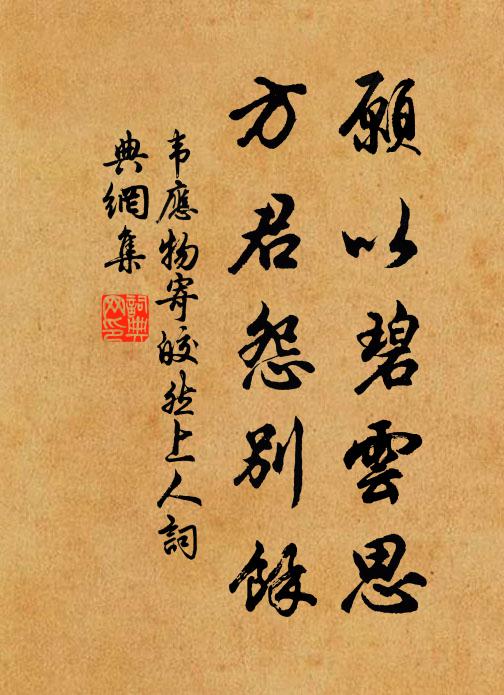 願以碧雲思
方君怨別餘
韦應物寄皎然上人詞
典網集
詞典
网印